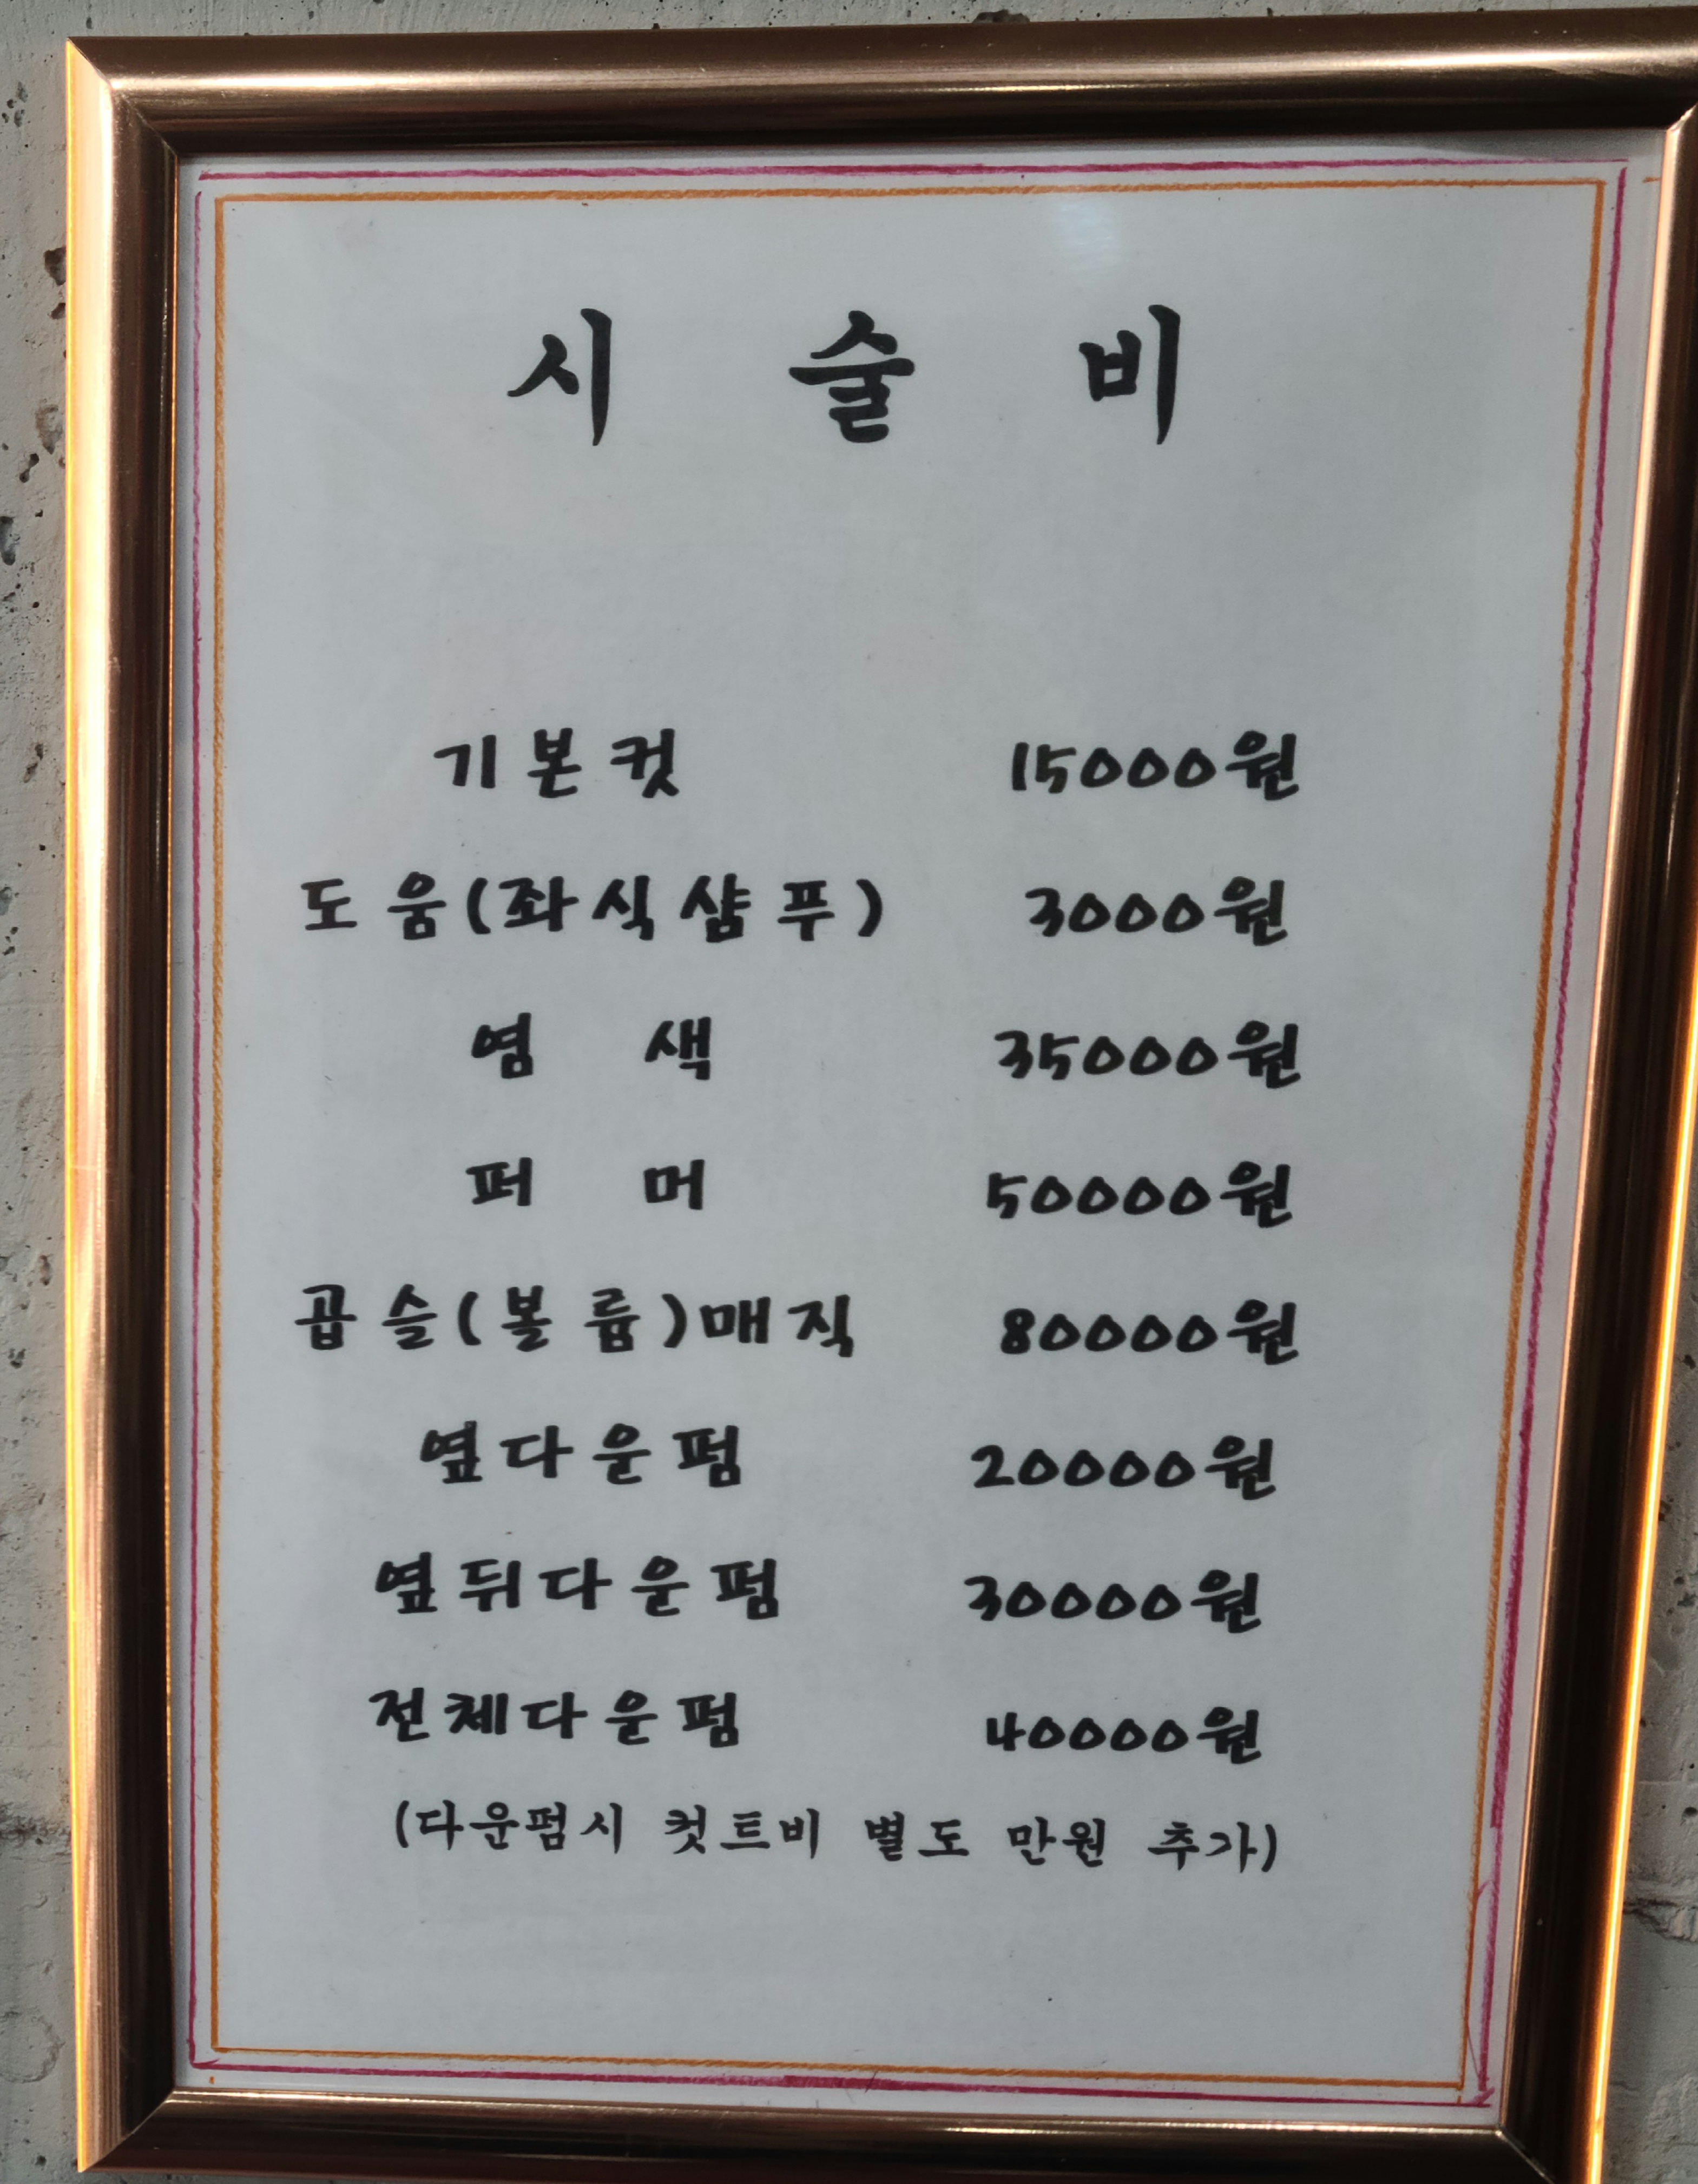 시 술 비
기본컷 15000원
도움(좌식샴푸) 3000원
염 색 35000원
퍼 머 50000원
곱슬(볼륨)매직 80000원
옆다운펌 20000원
옆뒤다운펌 30000원
전체다운펌 40000원
(다운펌시 컷트비 별도 만원 추가)